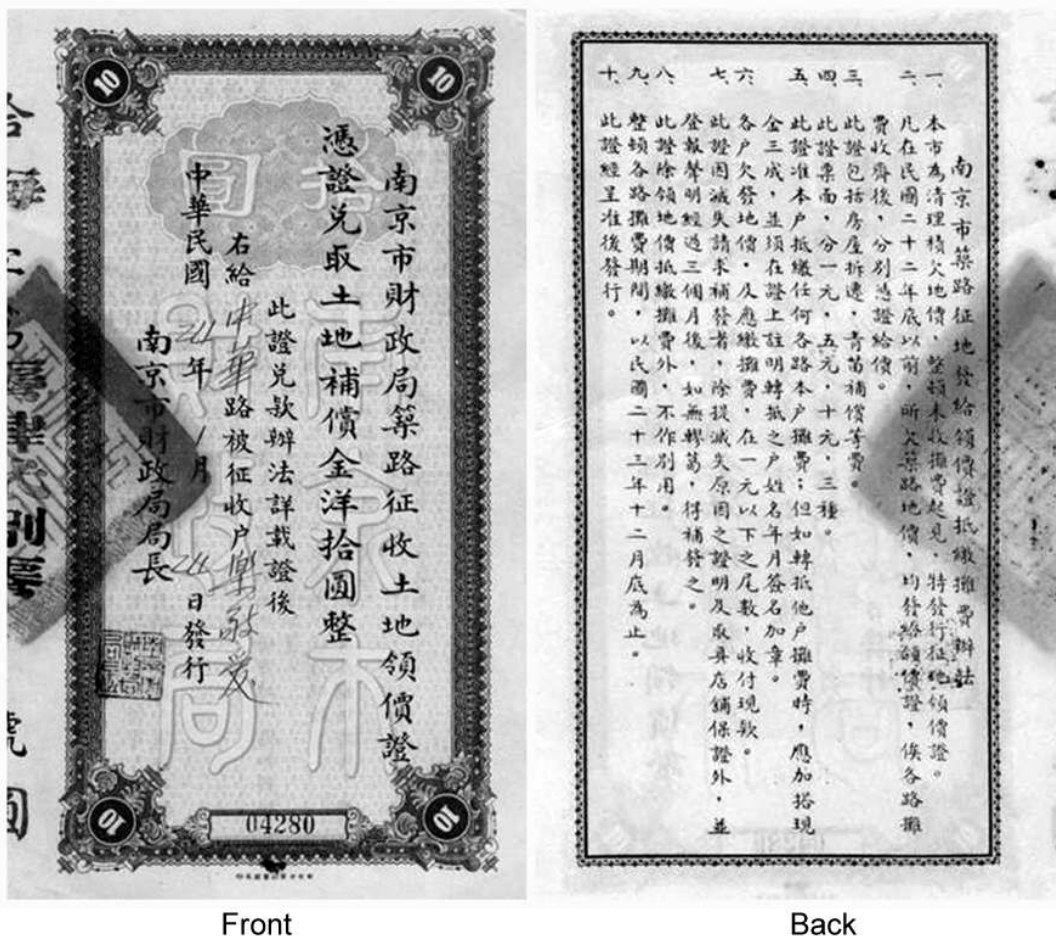 10
10
拾圓
南京市財政局築路征收土地領價證
憑證兌取土地補償金洋拾圓整
此證兌款辦法詳載證後
右給中華路被征收户樂
中華民國 年1月 日發行
南京市財政局局長
10
10
04280
Front
南京市築路征地發給領價證抵繳攤費辦法
一、本市為清理積欠地價,整頓未收攤費起見,特發行征地領價證。
二、凡在民國二十二年底以前,所欠築路地價,均發給領價證,俟各路攤
費收齊後,分別憑證給價。
三、此證包括房屋拆遷,青苗補償等費。
四、此證票面,分一元,五元,十元,三種。
五、此證准本户抵繳任何各路本户攤費;但如轉抵他户攤費時,應加搭現
金三成,並須在證上註明轉抵之户姓名年月簽名加章。
六、各户欠發地價,及應繳攤費,在一元以下之尾數,收付現款。
七、此證因滅失請求補發者,除提滅失原因之證明及取具店鋪保證外,並
登報聲明經過三個月後,如無轇葛,得補發之。
八、此證除領地價抵繳攤費外,不作別用。
九、整頓各路攤費期間,以民國二十三年十二月底為止。
十、此證經呈准後發行。
Back